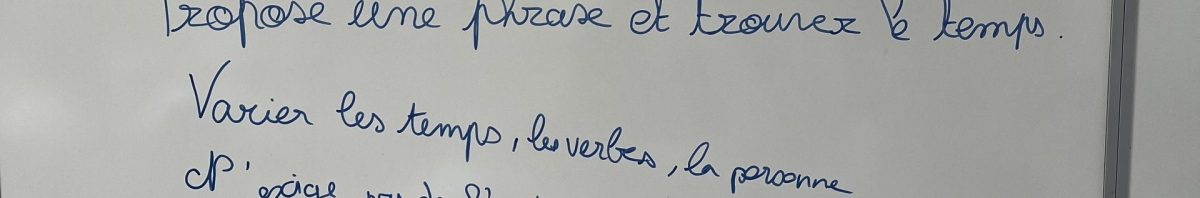 Propose une phrase et trouver le temps.
Varier les temps, les verbes, la personne
exige